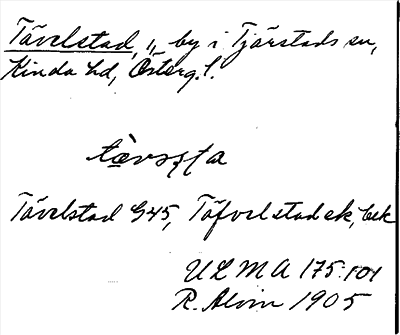 Tävelstad, by i Tjärstads sn,
Kinda hd, Österg. l.
Tävelstad G45, Täfvelstad ek, bek
ULMA 175:101
R. Alvin 1905